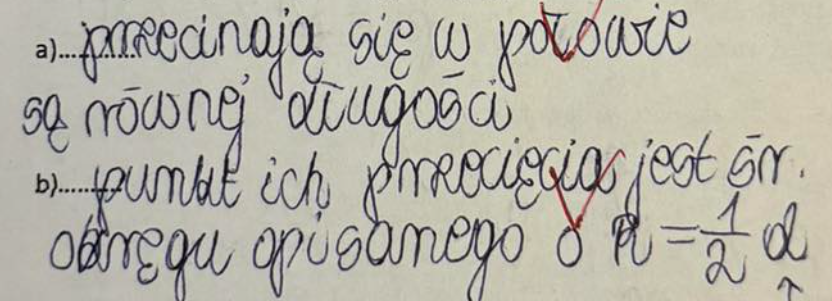 a)......przecinają się w połowie
są równej długości
b)......punkt ich przecięcia jest śr.
okręgu opisanego o R = 1/2 d
↑